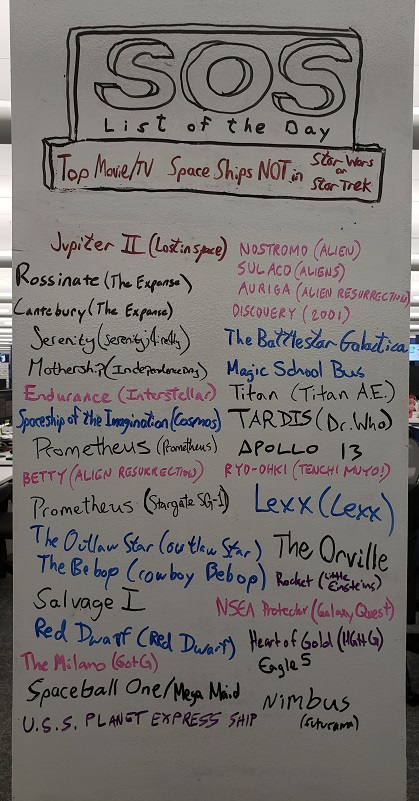 SOS
List of the Day
Top Movie/TV Space Ships NOT in Star Wars or Star Trek
Jupiter II (Lost in Space)
Rossinate (The Expanse)
Cantebury (The Expanse)
Serenity (Serenity/Firefly)
Mothership (Independence Day)
Endurance (Interstellar)
Spaceship of the Imagination (Cosmos)
Prometheus (Prometheus)
BETTY (ALIEN RESURRECTION)
Prometheus (Stargate SG-1)
The Outlaw Star (Outlaw Star)
The Bebop (Cowboy Bebop)
Salvage I
Red Dwarf (Red Dwarf)
The Milano (GotG)
Spaceball One/Mega Maid
U.S.S. PLANET EXPRESS SHIP
NOSTROMO (ALIEN)
SULACO (ALIENS)
AURIGA (ALIEN RESURRECTION)
DISCOVERY (2001)
The Battlestar Galactica
Magic School Bus
Titan (Titan A.E.)
TARDIS (Dr. Who)
APOLLO 13
RYO-OHKI (TENCHI MUYO!)
Lexx (Lexx)
The Orville
Rocket (Little Einsteins)
NSEA Protector (Galaxy Quest)
Heart of Gold (HGttG)
Eagle 5
Nimbus
(Futurama)